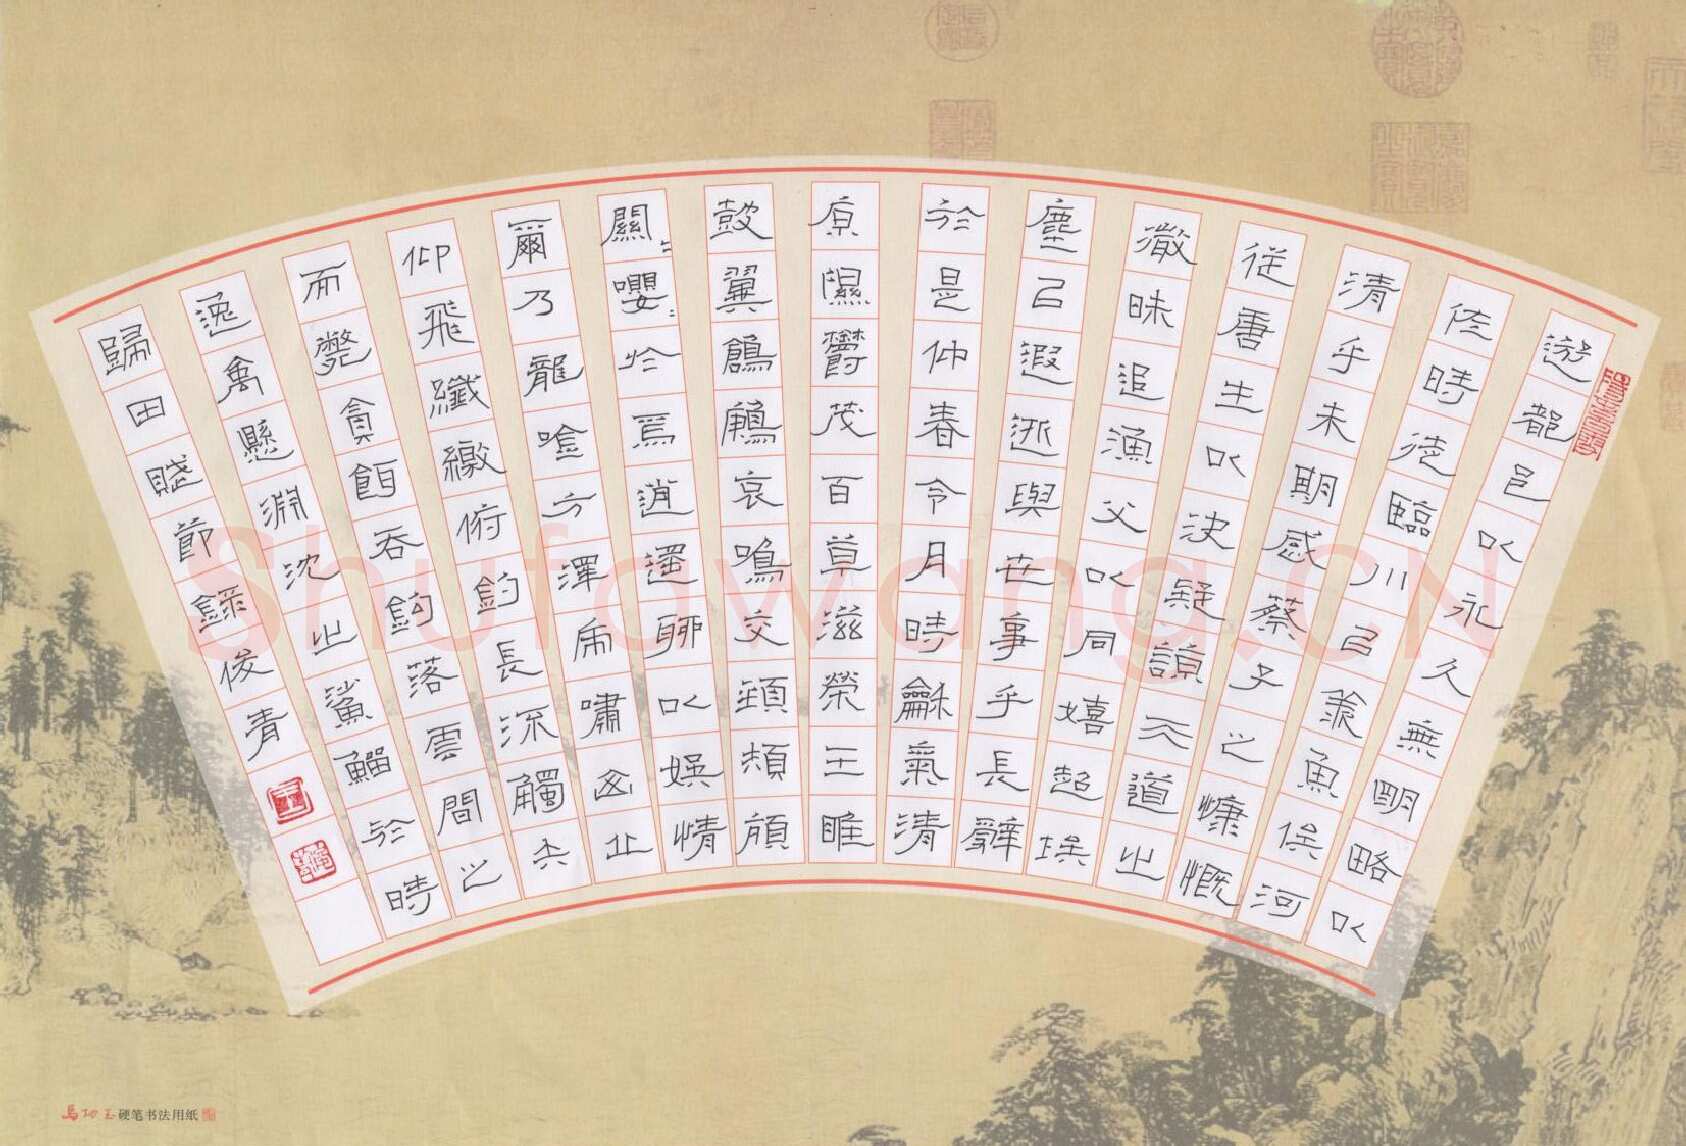 遊都邑以永久無明略以
佐時徒臨川㠯羨魚俟河
清乎未期感蔡子之慷慨
從唐生以決疑諒天道之
微昧追漁父以同嬉超埃
塵㠯遐逝與世事乎長辭
於是仲春令月時龢氣清
原隰鬱茂百草滋榮王雎
鼓翼鶬鶊哀鳴交頸頡頏
關〻嚶〻於焉逍遙聊以娛情
爾乃龍唫方澤虎嘯山丘
仰飛纖繳俯釣長流觸矢
而斃貪餌吞鉤落雲間之
逸禽懸淵沈之鯊鰡於時
歸田賦節錄俊青
Shufawang.CN
硬笔书法用纸